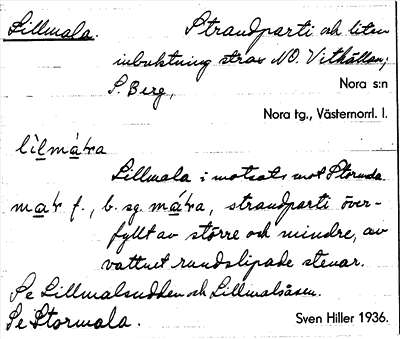 Lillmala. Strandparti och liten
inbuktning strax NO. Vitkällan;
S. Berg,
Nora s:n
Nora tg., Västernorrl. l.
lìlmára
Lillmala i motsats mot Stormala.
mar f., b. sg. mára, strandparti över-
fyllt av större och mindre, av
vattnet rundslipade stenar.
Se Lillmalsudden och Lillmalsåsen.
Se Stormala.
Sven Hiller 1936.